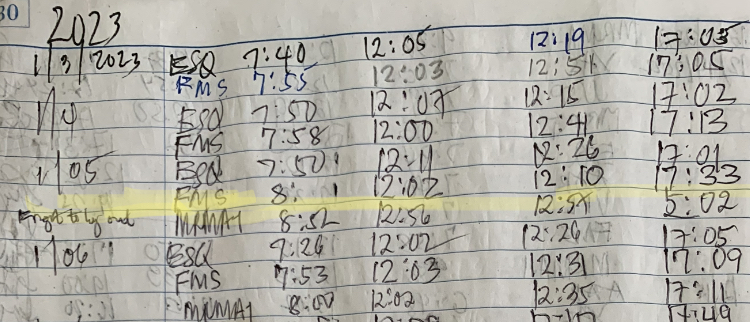 30
2023
1/3/2023 ESQ 7:40 12:05 12:19 17:03
FMS 7:55 12:03 12:51 17:05
1/4 ESQ 7:50 12:07 12:15 17:02
FMS 7:58 12:00 12:41 17:13
1/05 ESQ 7:50 12:11 12:26 17:01
FMS 8: 12:02 12:10 17:33
8:52 12:56 12:57 5:02
1/06 ESQ 7:26 12:02 12:26 17:05
FMS 7:53 12:03 12:31 17:09
8:00 12:02 12:35 17:11
17:49